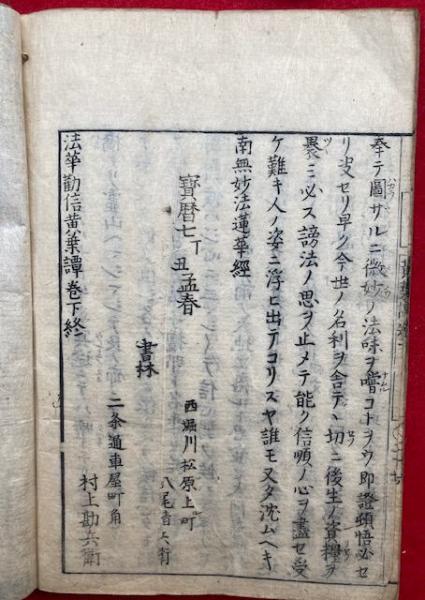 奉テ圖サルニ微妙ノ法味ヲ嘗コトヲウ即證頓悟必セ
リ早ク今世ノ名利ヲ舎テ丶切ニ後生ノ資糧ヲ
必ス謗法ノ思ヲ止メテ能ク信順ノ心ヲ盡セ受
ケ難キ人ノ姿ニ浮ヒ出テコリズヤ誰モ又タ沈ムヘキ
南無妙法蓮華經
寳暦七丁丑孟春
西堀川松原上町
八尾
書林
二条通車屋町角
村上勘兵衛
法華勸信黄葉譚巻下終